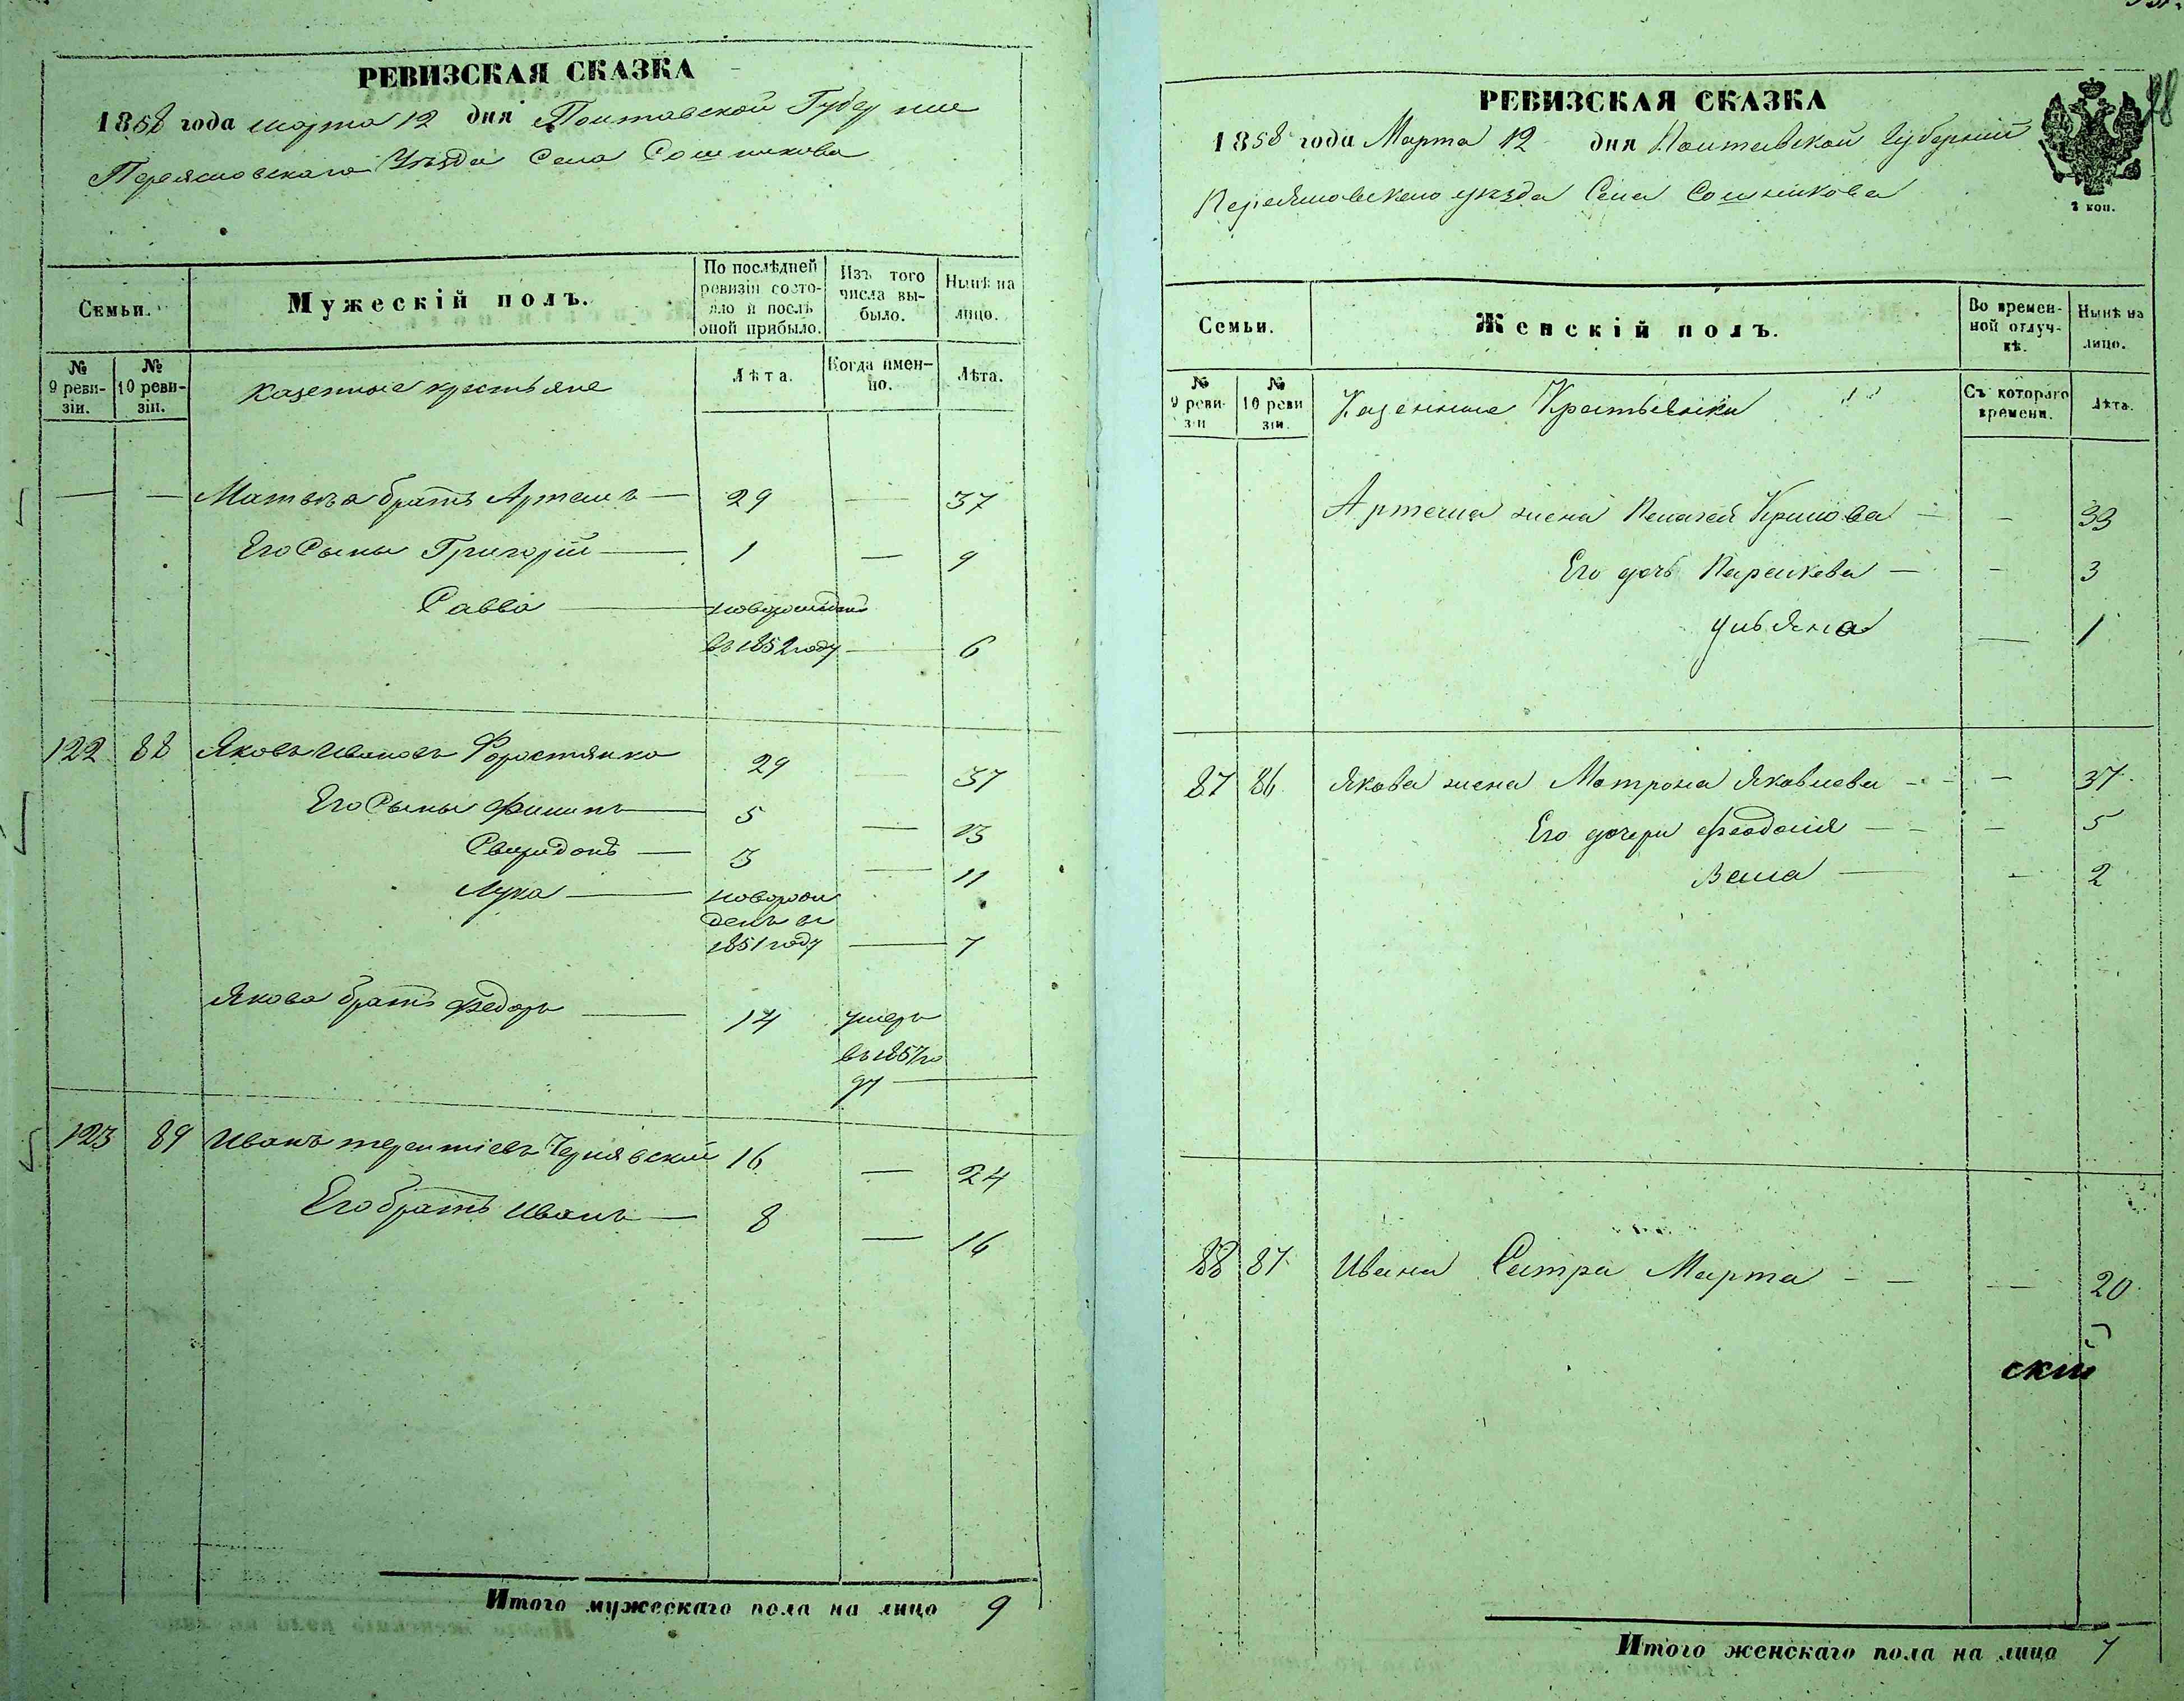 РЕВИЗСКАЯ СКАЗКА
1858 года марта 12 дня Полтавской Губернии
Переяславскаго Уѣзда Села Сошникова
Семьи.
Мужескій полъ.
По послѣдней ревизіи состояло и послѣ оной прибыло.
Изъ того числа выбыло.
Нынѣ на лицо.
№ 9 ревизіи.
№ 10 ревизіи.
Казенные крестьяне
Лѣта.
Когда именно.
Лѣта.
— — Матвѣя братъ Артемъ — 29 — 37
Его Сыны Григорій — 1 — 9
Савва — новорожденъ
въ 1852 году — 6
122 88 Яковъ Ивановъ Форостянко 29 — 37
Его Сыны Филипъ — 5 — 13
Свиридонъ — 3 — 11
Лука — новорож
денъ въ
1851 году — 7
Якова братъ Федоръ — 14 умеръ
въ 1857 го
ду —
123 89 Иванъ терентіевъ Чернявскій 16 — 24
Его братъ Иванъ — 8 — 16
Итого мужескаго пола на лицо 9
РЕВИЗСКАЯ СКАЗКА
1858 года Марта 12 дня Полтавской Губерніи
Переяславскаго уѣзда Села Сошникова
2 коп.
88
Семьи.
Женскій полъ.
Во временной отлучкѣ.
Нынѣ на лицо.
№ 9 ревизіи
№ 10 ревизіи.
Казенные Крестьянки
Съ котораго времени.
Лѣта.
Артема жена Пелагея Климова — — 33
Его дочь Параскева — — 3
Ульяна — 1
87 86 Якова жена Матрона Яковлева — — 37
Его дочери Феодосія — — 5
Васса — — 2
88 87 Ивана Сестра Марта — — — 20
скій
Итого женскаго пола на лицо 7